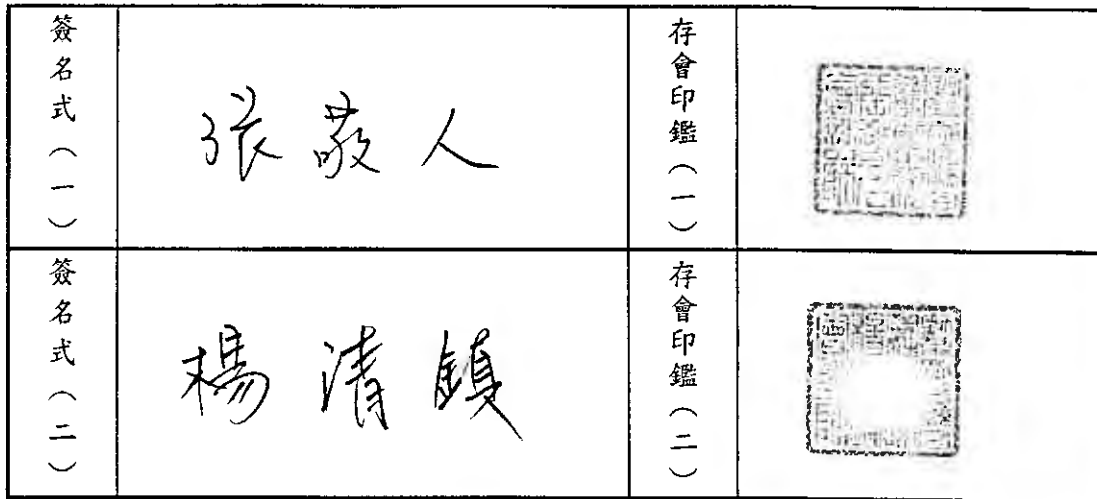 簽名式（一）
張敬人
存會印鑑（一）
簽名式（二）
楊清鎮
存會印鑑（二）